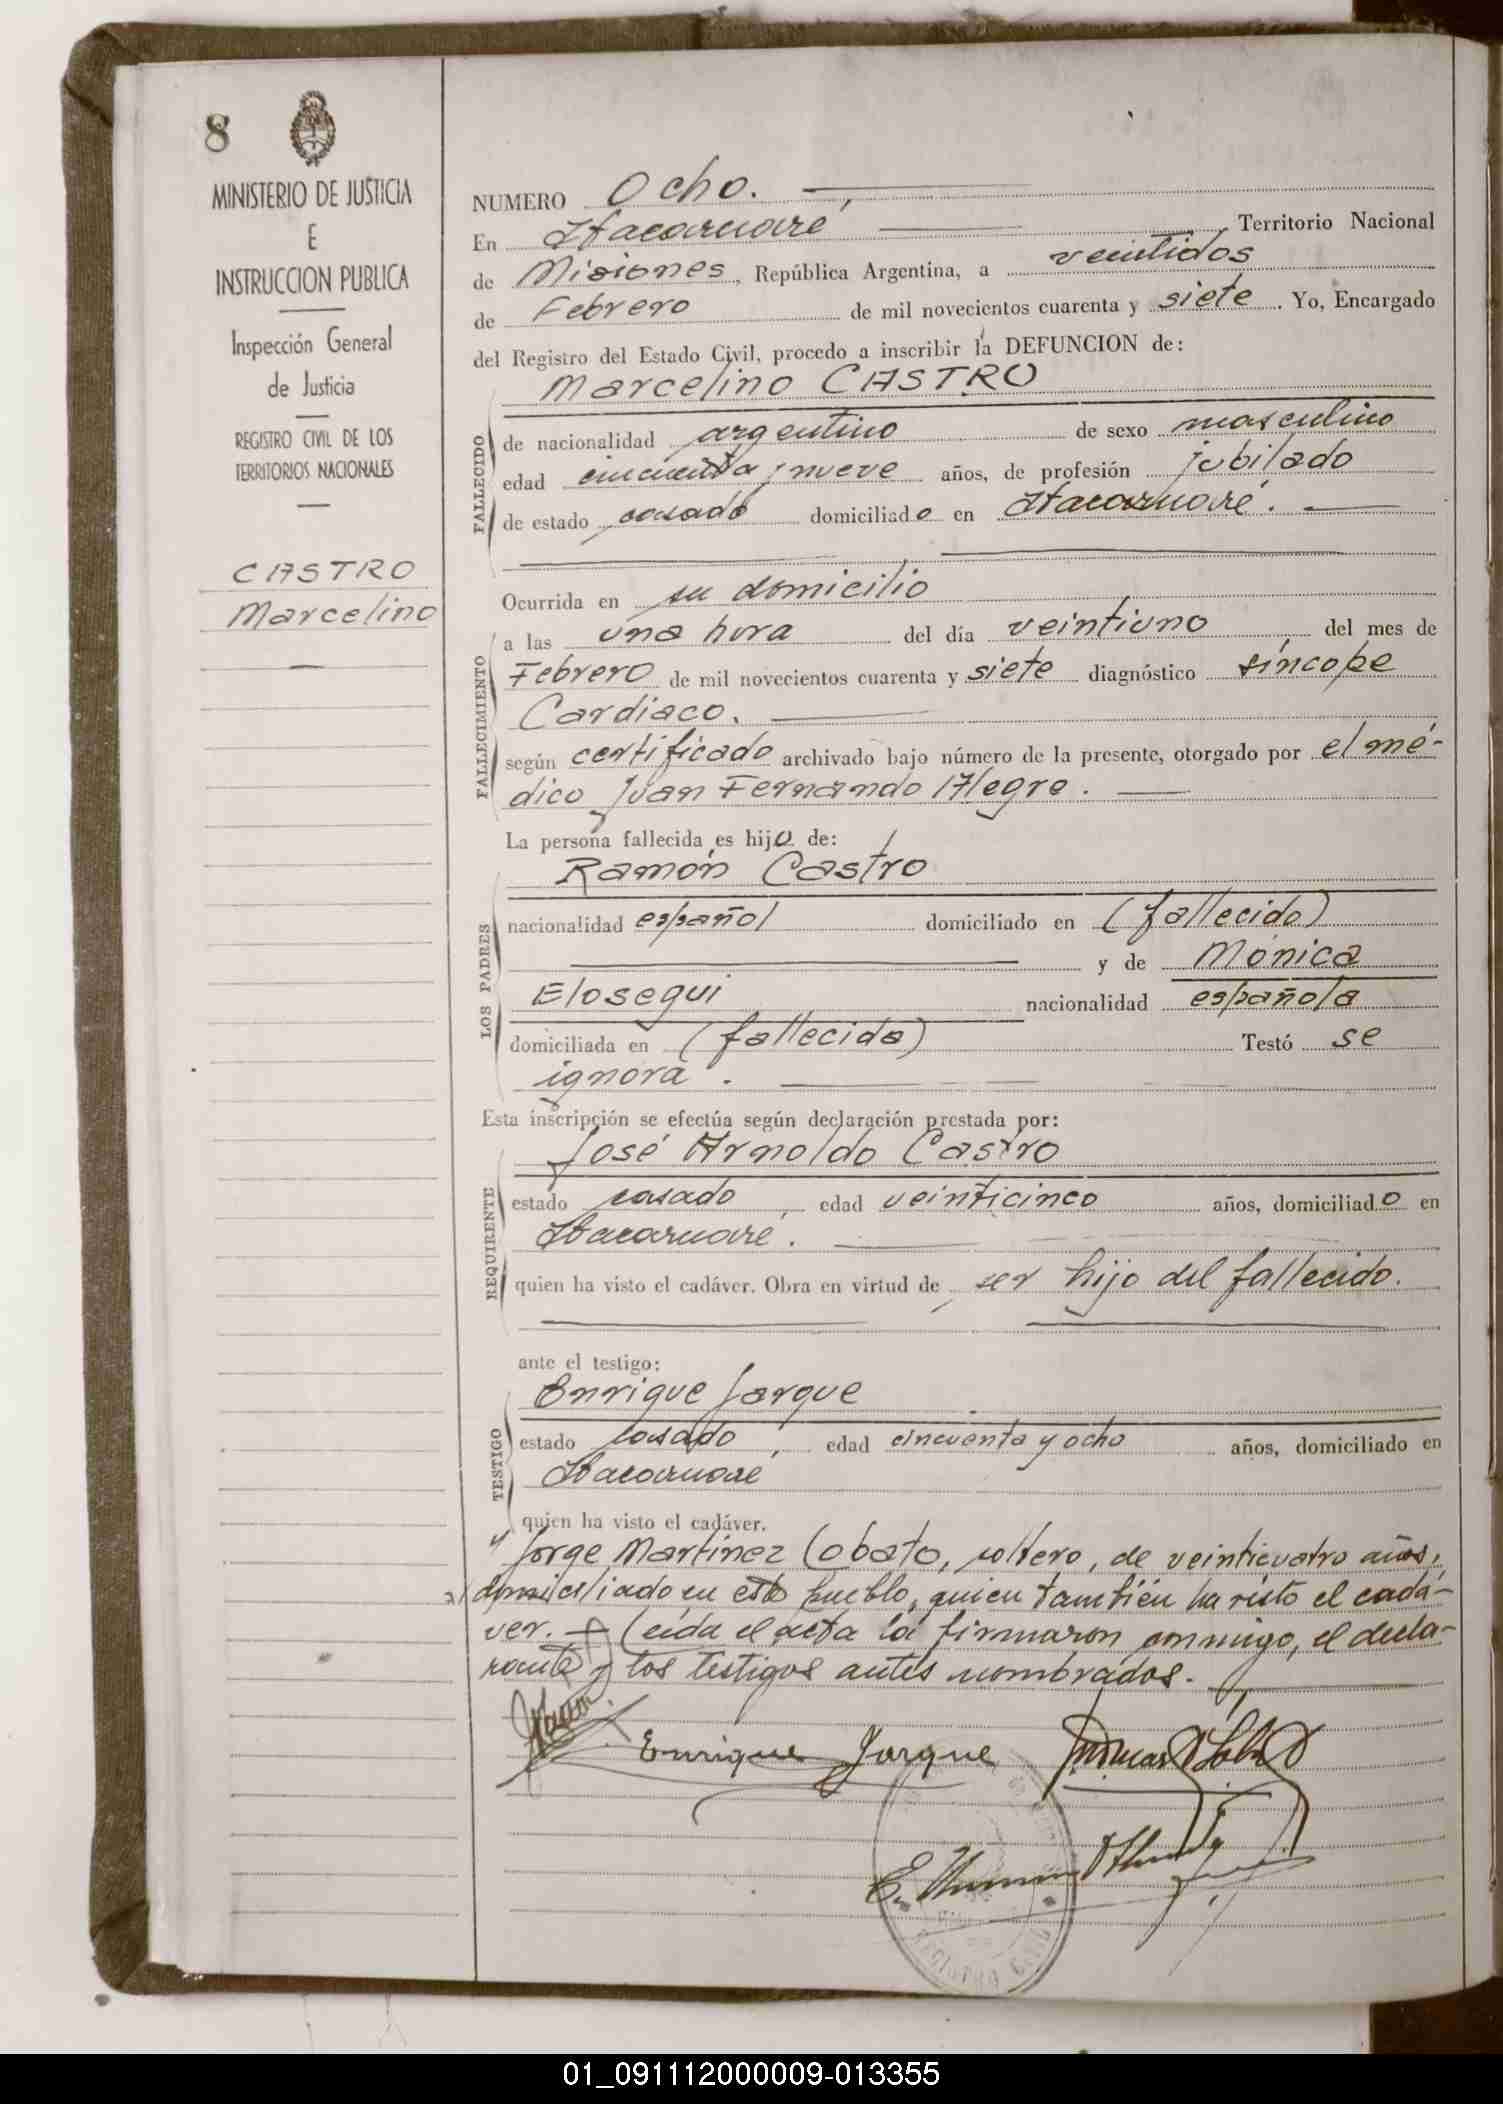 8
MINISTERIO DE JUSTICIA
E
INSTRUCCION PUBLICA
Inspección General
de Justicia
REGISTRO CIVIL DE LOS
TERRITORIOS NACIONALES
CASTRO
Marcelino
NUMERO Ocho.
En Itacaruaré, Territorio Nacional
de Misiones, República Argentina, a veintidos
de Febrero de mil novecientos cuarenta y siete. Yo, Encargado
del Registro del Estado Civil, procedo a inscribir la DEFUNCION de:
Marcelino CASTRO
FALLECIDO
de nacionalidad argentino de sexo masculino
edad cincuenta y nueve años, de profesión jubilado
de estado casado domiciliado en Itacaruaré.
Ocurrida en su domicilio
FALLECIMIENTO
a las una hora del día veintiuno del mes de
Febrero de mil novecientos cuarenta y siete diagnóstico síncope
Cardiaco.
según certificado archivado bajo número de la presente, otorgado por el mé-
dico Juan Fernando Alegre.
La persona fallecida es hijo de:
LOS PADRES
Ramón Castro
nacionalidad español domiciliado en (fallecido)
y de Mónica
Elosegui nacionalidad española
domiciliada en (fallecida) Testó se
ignora.
Esta inscripción se efectúa según declaración prestada por:
REQUIRENTE
José Arnoldo Castro
estado casado, edad veinticinco años, domiciliado en
Itacaruaré.
quien ha visto el cadáver. Obra en virtud de ser hijo del fallecido.
ante el testigo:
TESTIGO
Enrique Jarque
estado casado, edad cincuenta y ocho años, domiciliado en
Itacaruaré
quien ha visto el cadáver.
y Jorge Martínez Lobato, soltero, de veinticuatro años,
domiciliado en este pueblo, quien también ha visto el cadá-
ver. Leída el acta la firmaron conmigo, el decla-
rante y los testigos antes nombrados.
Enrique Jarque
REGISTRO CIVIL
01_091112000009-013355